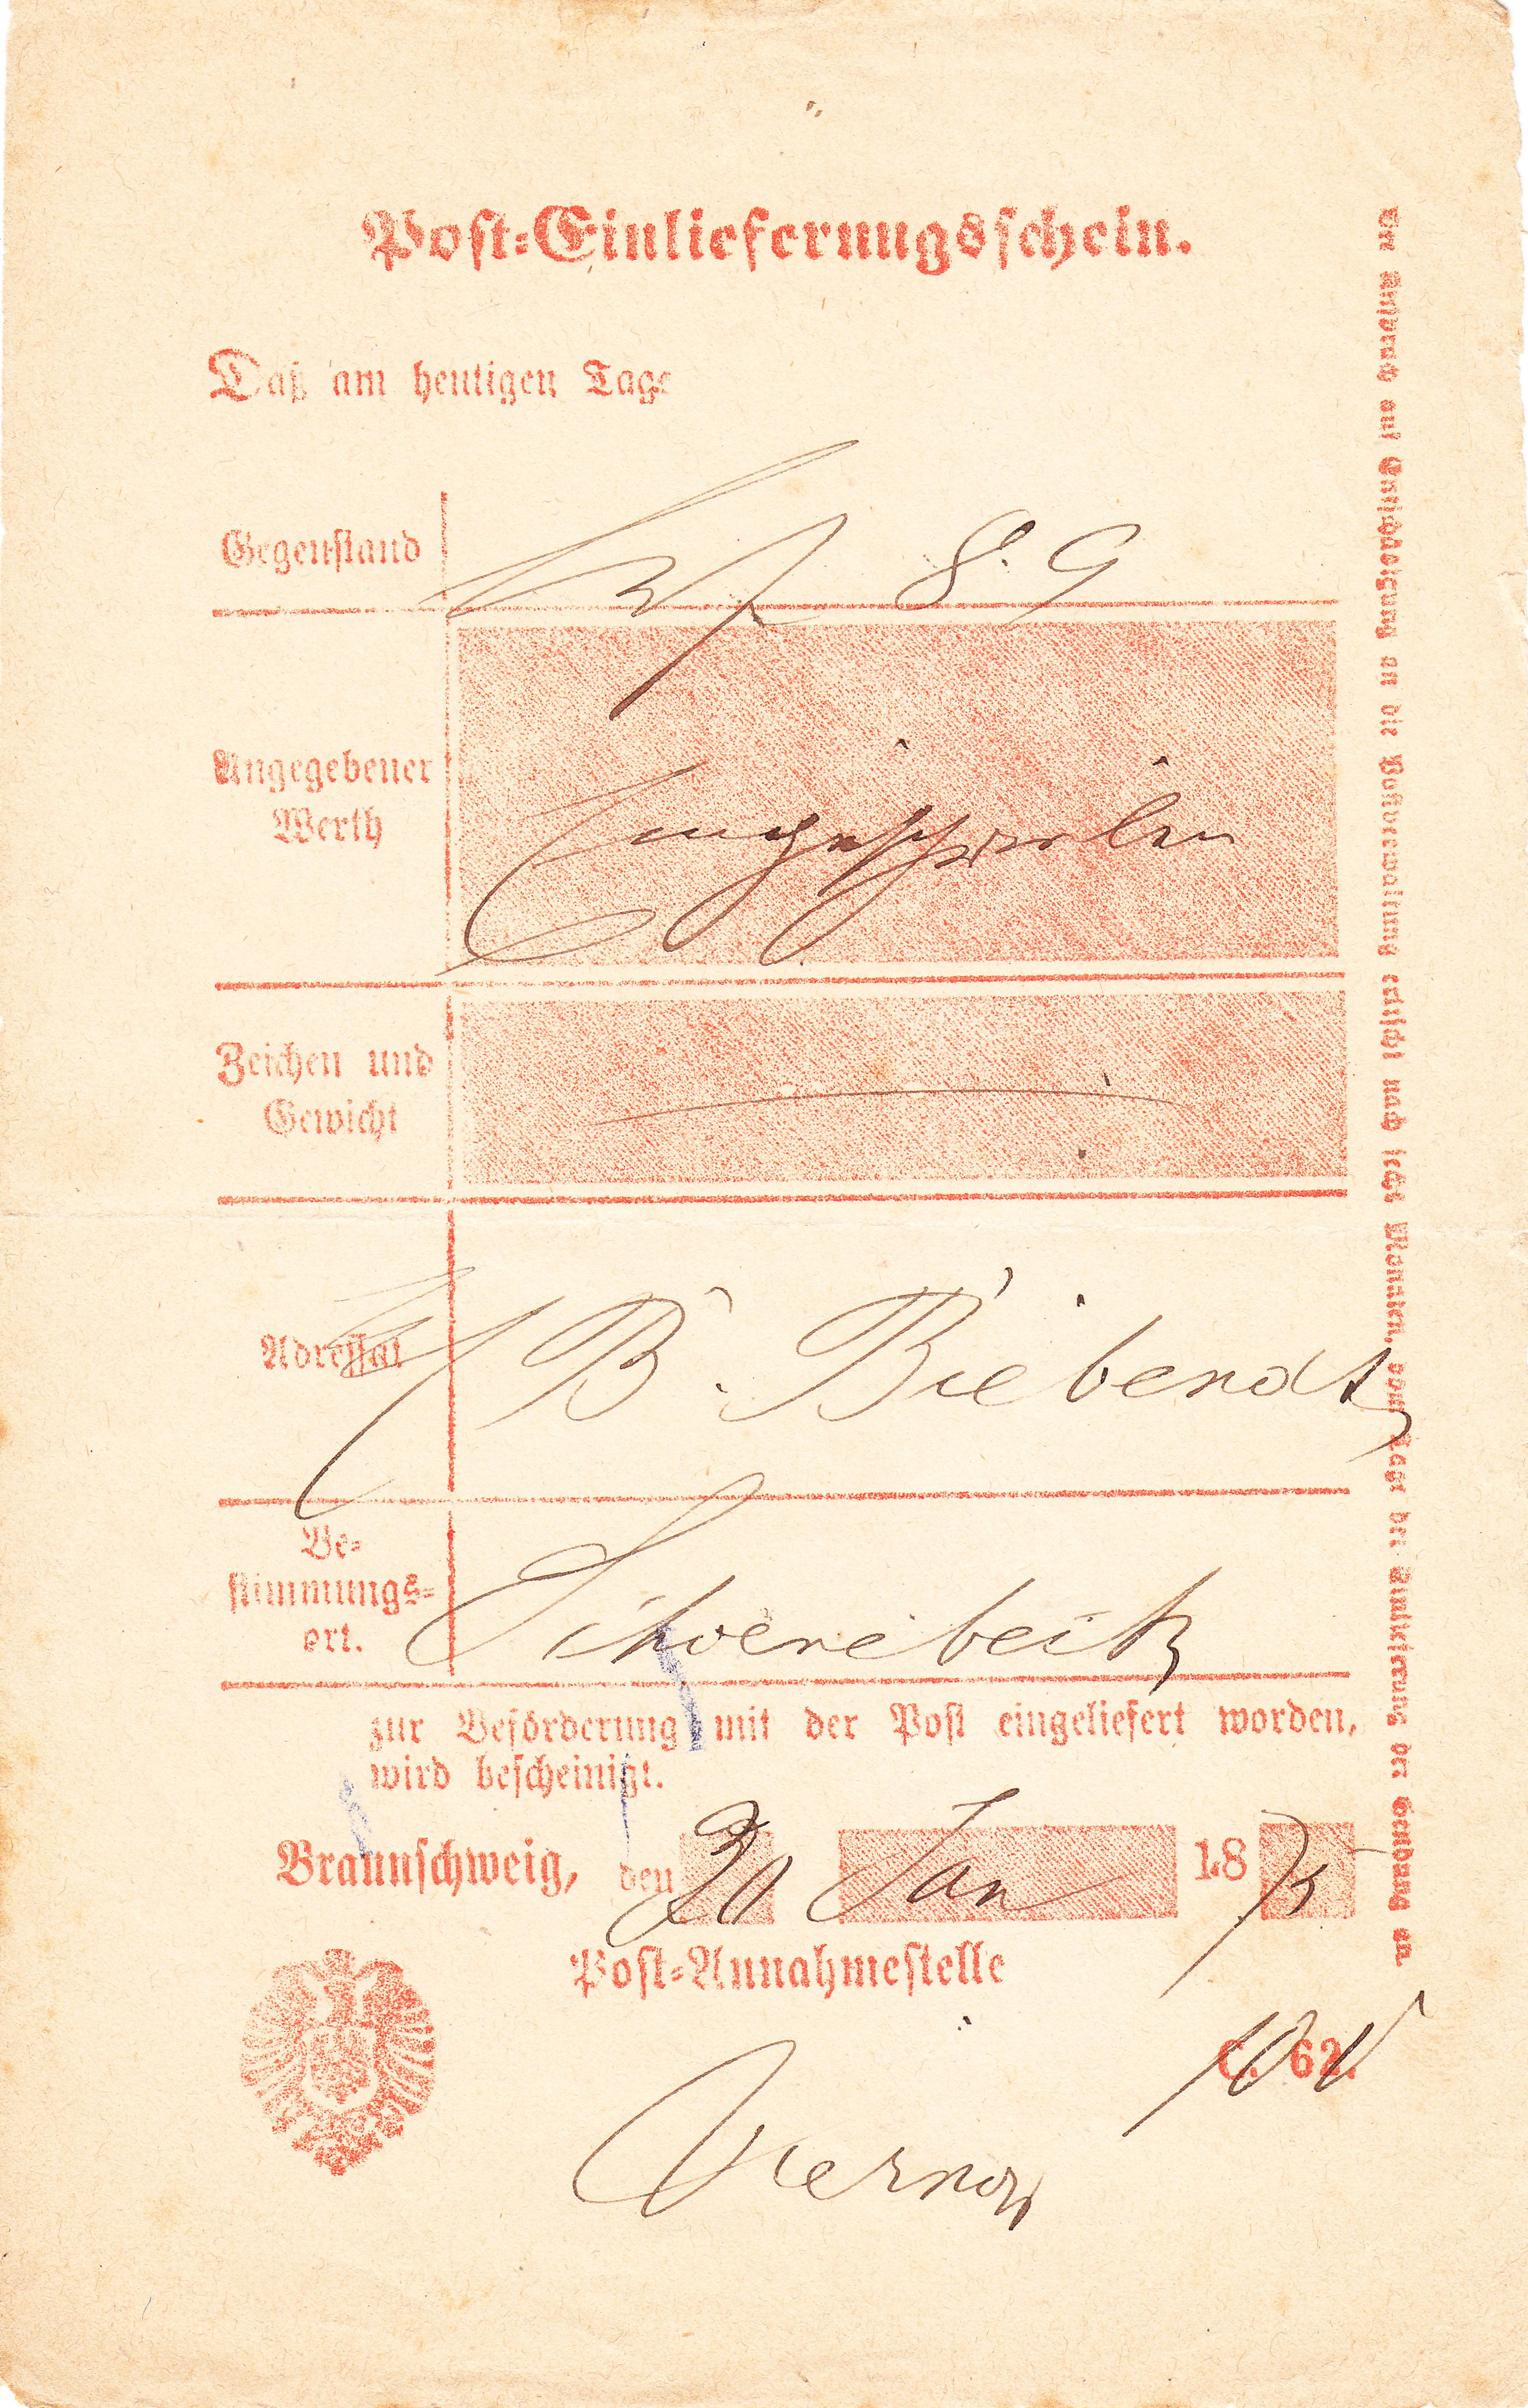 Post-Einlieferungsschein.
Daß am heutigen Tage
Gegenstand 89
Angegebener
Werth
Eingeschrieben
Zeichen und
Gewicht
Adressat B. Biebendt
Be-
stimmungs-
ort.
Schoenebeck
zur Beförderung mit der Post eingeliefert worden,
wird bescheinigt.
Braunschweig, den 30 Jan 1875
Post-Annahmestelle
C. 62.
Der Anspruch auf Entschädigung an die Postverwaltung erlischt nach sechs Monaten, vom Tage der Einlieferung der Sendung an